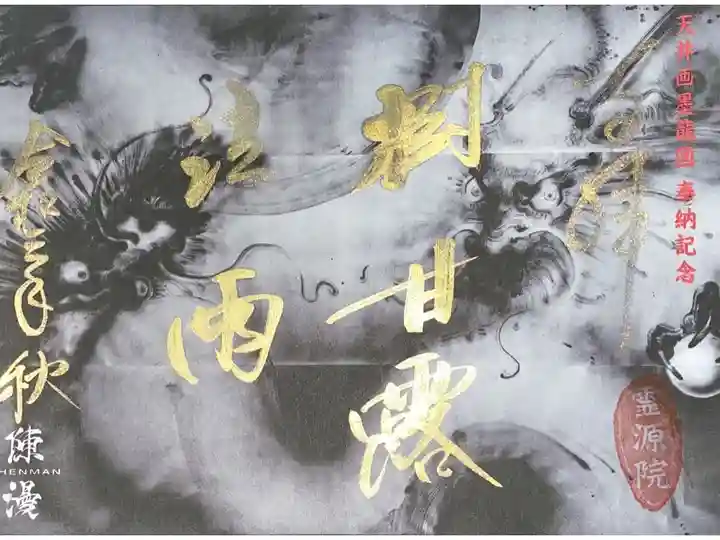 天井画墨龍圖 奉納記念
澍甘露
法雨
令和三年秋
陳漫
HENMAN
霊源院